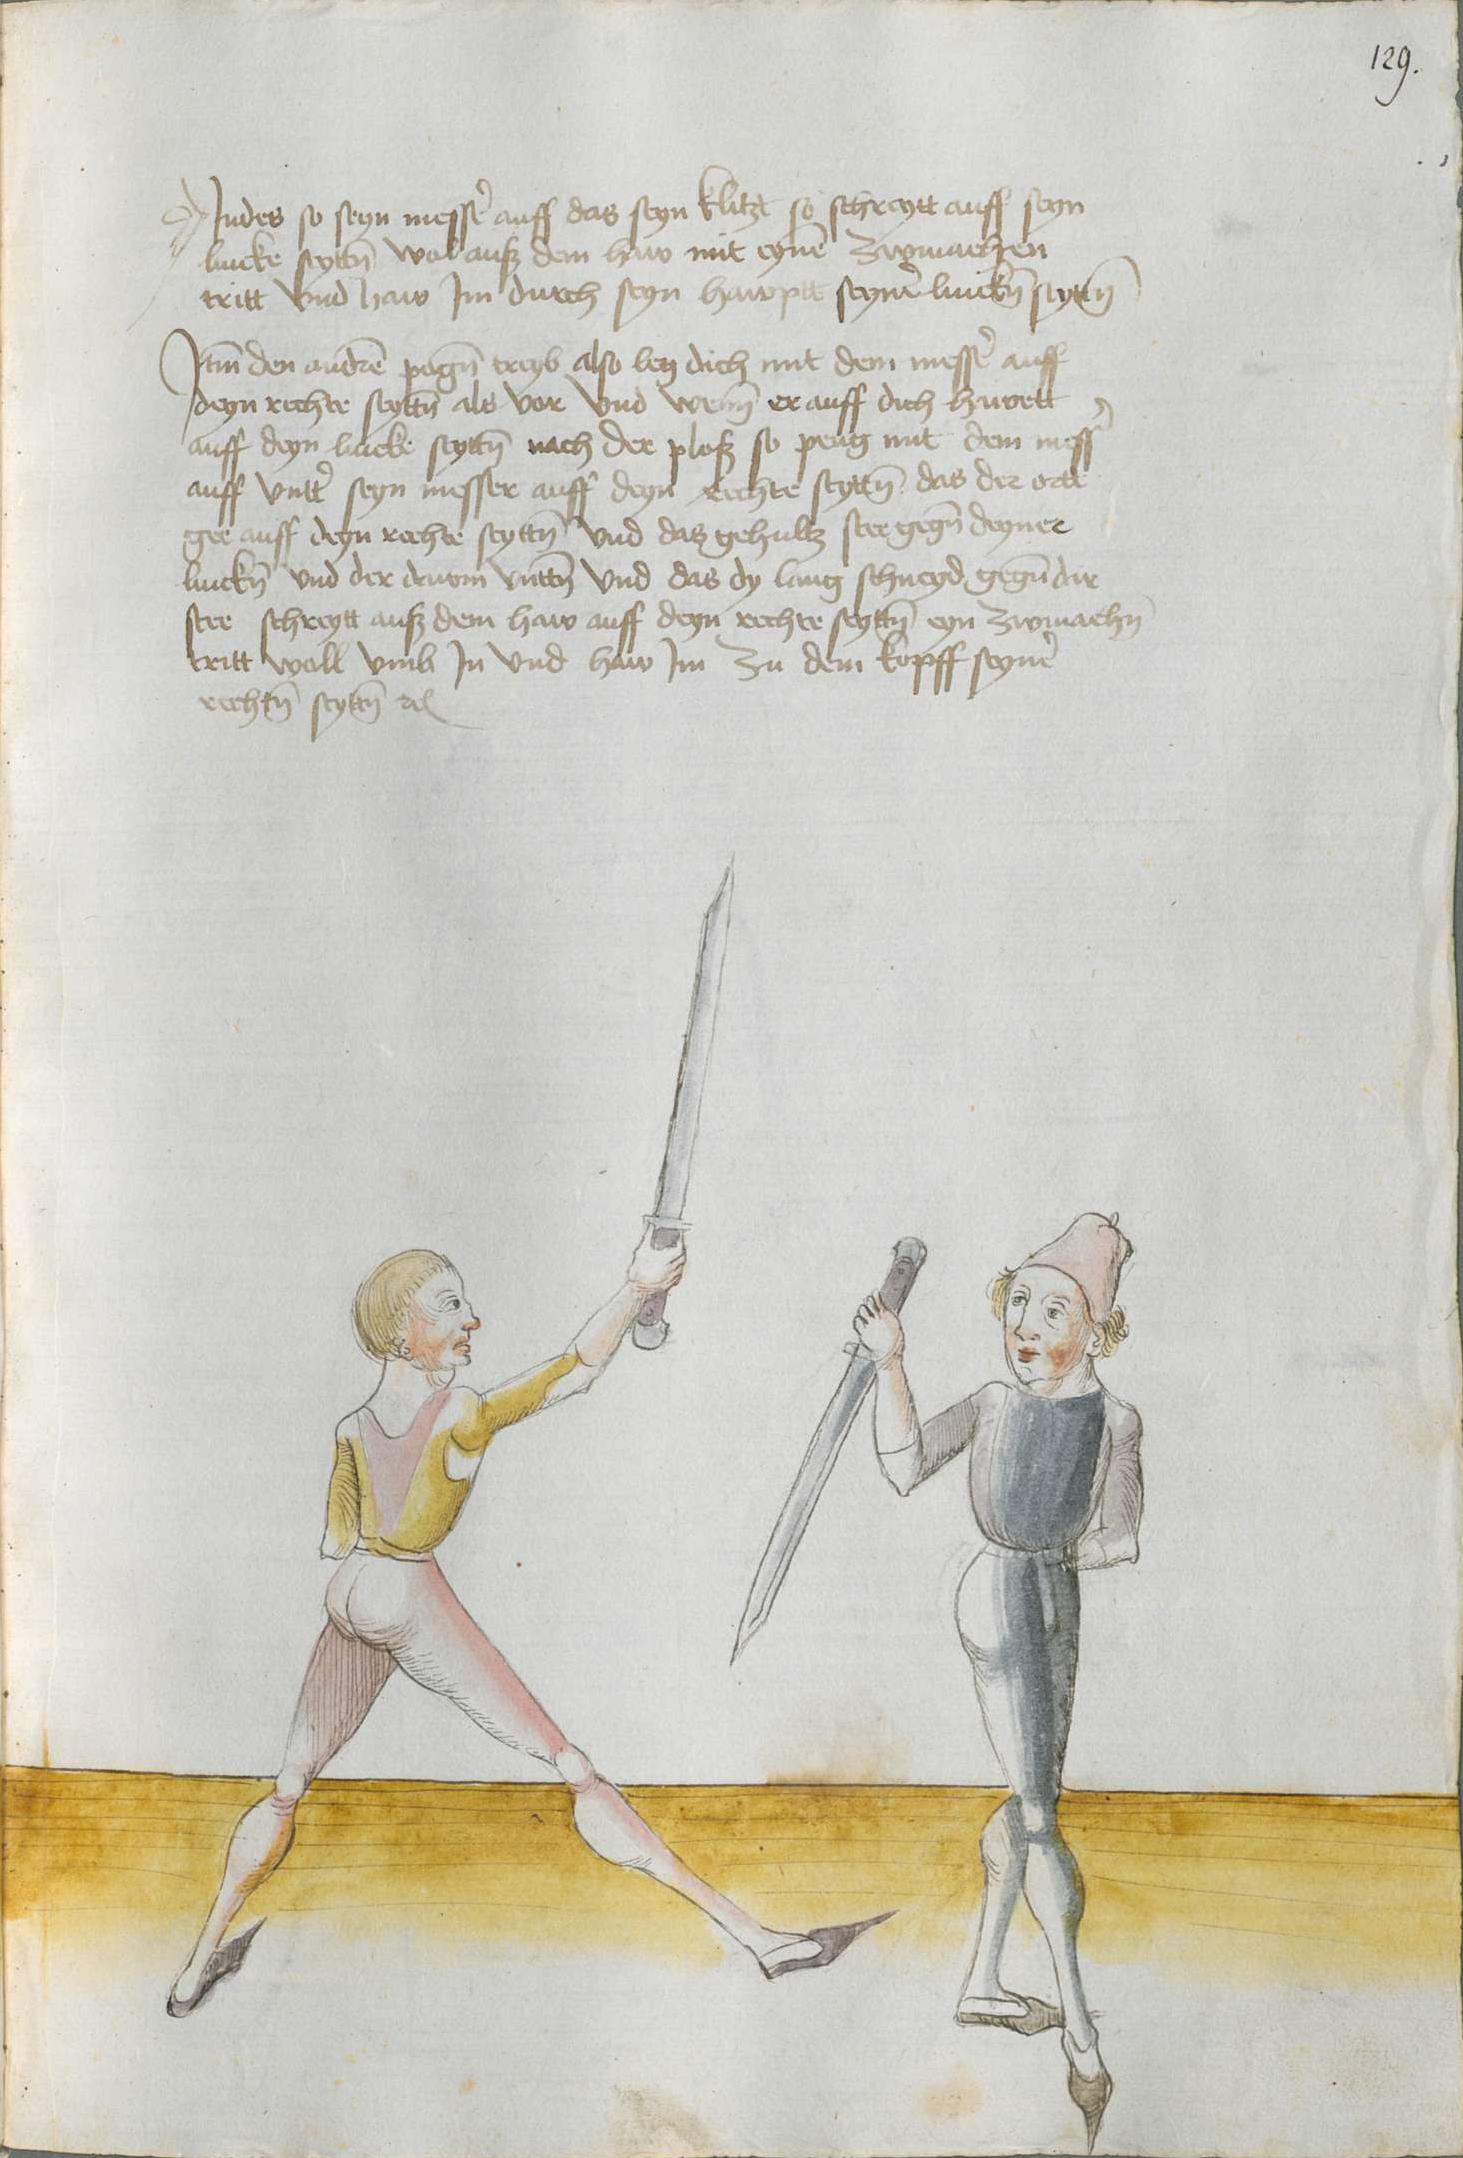 129.
Indes so seyn messer̄ auff das seyn klitzt so schreytt auff seyn
lincke seyttn̄ wol auß dem haw mit eynē zwymachen
tritt vnd haw Im durch seyn hawptt seyner̄ linckn̄ seyttn̄
Itm̄ den andrē pogn̄ treyb also leg dich mit dem messer̄ auff
deyn rechte seyttn̄ als vor vnd wenn̄ er auff dich hawett
auff deyn lincke seyttn̄ nach der ploß so peug mit dem messer̄
auff vntter̄ seyn messer auff deyn rechte seyttn̄ das der ortt
gee auff deyn rechte seyttn̄ vnd das gehultz stee gegn̄ deyner
linckn̄ vnd der dawm vnttn̄ vnd das dy lang schneyd gegn̄ dir
stee schreytt auß dem haw auff deyn rechte seyttn̄ eyn zwymachn̄
tritt woll vmb In vnd haw Im zu dem kopff seyner̄
rechtn̄ seyttn̄